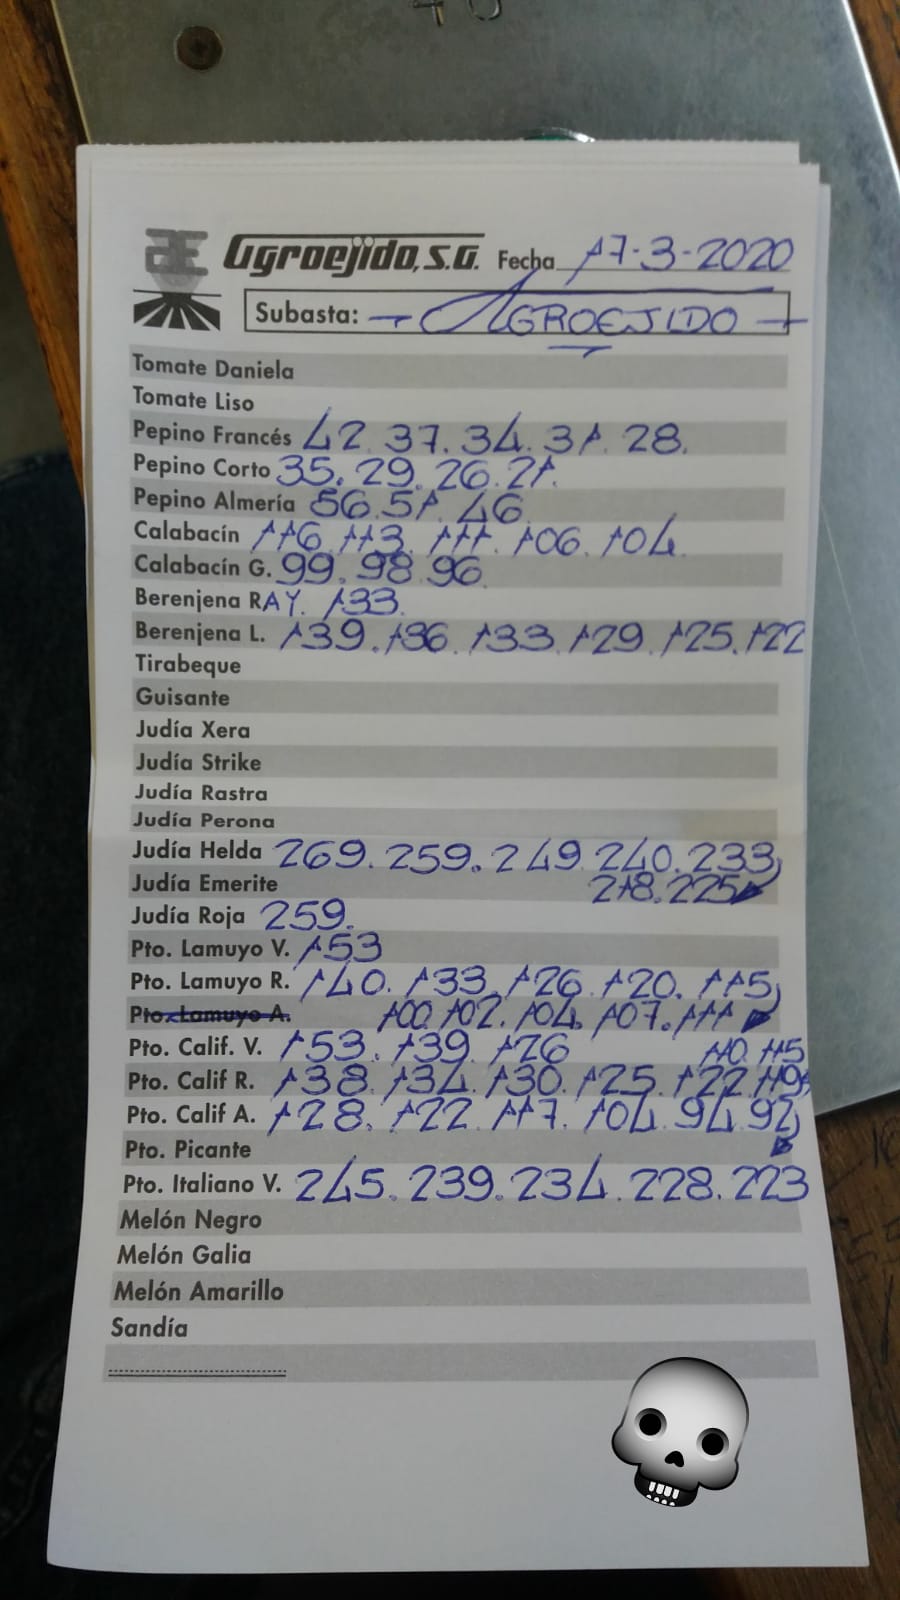 40
Agroejido, S.A. Fecha 17-3-2020
Subasta: - AGROEJIDO -
Tomate Daniela
Tomate Liso
Pepino Francés 42. 37. 34. 31. 28.
Pepino Corto 35. 29. 26. 21.
Pepino Almería 56. 51. 46
Calabacín 116. 113. 111. 106. 104.
Calabacín G. 99. 98. 96.
Berenjena RAY. 133.
Berenjena L. 139. 136. 133. 129. 125. 122
Tirabeque
Guisante
Judía Xera
Judía Strike
Judía Rastra
Judía Perona
Judía Helda 269. 259. 249. 240. 233
Judía Emerite 218. 225
Judía Roja 259.
Pto. Lamuyo V. 153
Pto. Lamuyo R. 140. 133. 126. 120. 115
Pto. Lamuyo A. 100. 102. 104. 107. 111
Pto. Calif. V. 153. 139. 126 110. 115
Pto. Calif R. 138. 134. 130. 125. 122. 119
Pto. Calif A. 128. 122. 117. 104. 94. 92
Pto. Picante
Pto. Italiano V. 245. 239. 234. 228. 223
Melón Negro
Melón Galia
Melón Amarillo
Sandía